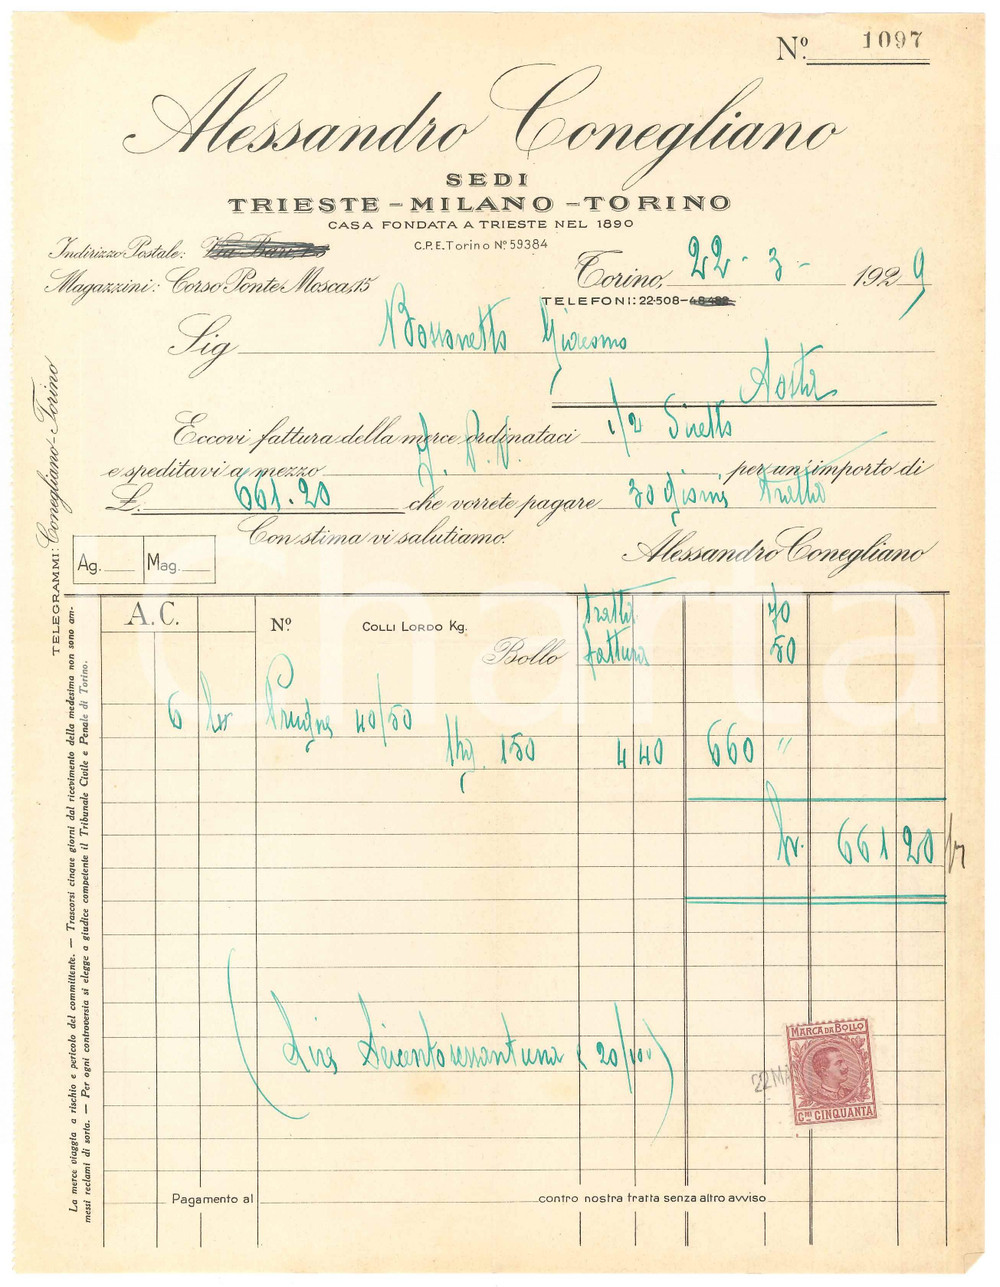 Nº. 1097
Alessandro Conegliano
SEDI
TRIESTE - MILANO - TORINO
CASA FONDATA A TRIESTE NEL 1890
C.P.E. Torino Nº 59384
Indirizzo Postale:
Magazzini: Corso Ponte Mosca, 15
Torino, 22 - 3 - 1929
TELEFONI: 22-508-
Sig Giacomo
Aosta
Eccovi fattura della merce ordinataci 1/2
e speditavi a mezzo , per un'importo di
£. 661.20 che vorrete pagare 30 giorni tratta
Con stima vi salutiamo.
Alessandro Conegliano
Ag. Mag.
TELEGRAMMI: Conegliano-Torino
A.C. Nº COLLI LORDO Kg.
tratta 70
Bollo fattura 50
6 Prugne 40/50
Kg. 150 4 40 660 "
661 20
Lire Seicentosessantuna (20/100)
MARCA DA BOLLO
22 MA
CMI CINQUANTA
Pagamento al contro nostra tratta senza altro avviso
La merce viaggia a rischio e pericolo del committente. — Trascorsi cinque giorni dal ricevimento della medesima non sono am-
messi reclami di sorta. — Per ogni controversia si elegge a giudice competente il Tribunale Civile e Penale di Torino.
Charta